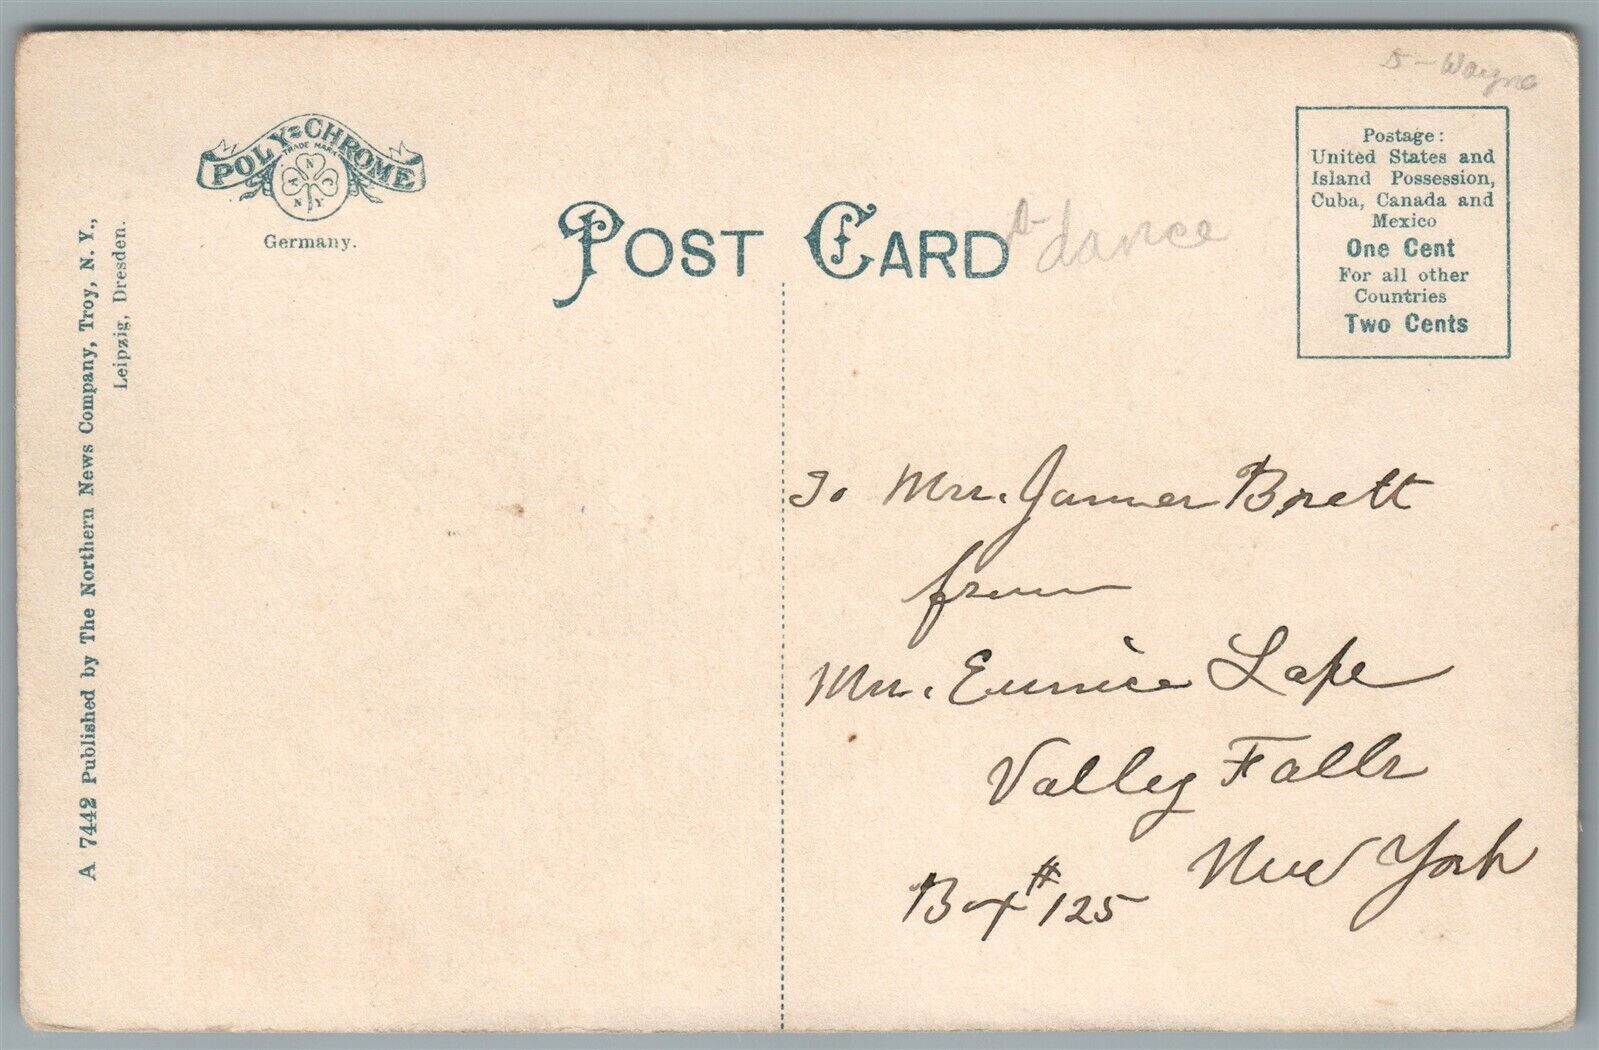 5 - Wayne
POLY-CHROME
TRADE MARK
A N C N Y
Germany.
POST CARD
dance
Postage:
United States and
Island Possession,
Cuba, Canada and
Mexico
One Cent
For all other
Countries
Two Cents
A 7442 Published by The Northern News Company, Troy, N. Y.,
Leipzig, Dresden.
To Mrs. James Brett
from
Mrs. Eunice Lape
Valley Falls
New York
Box #125